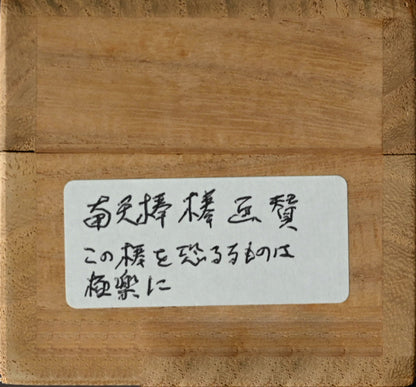 南天棒 棒画賛
この棒を恐るるものは
極楽に